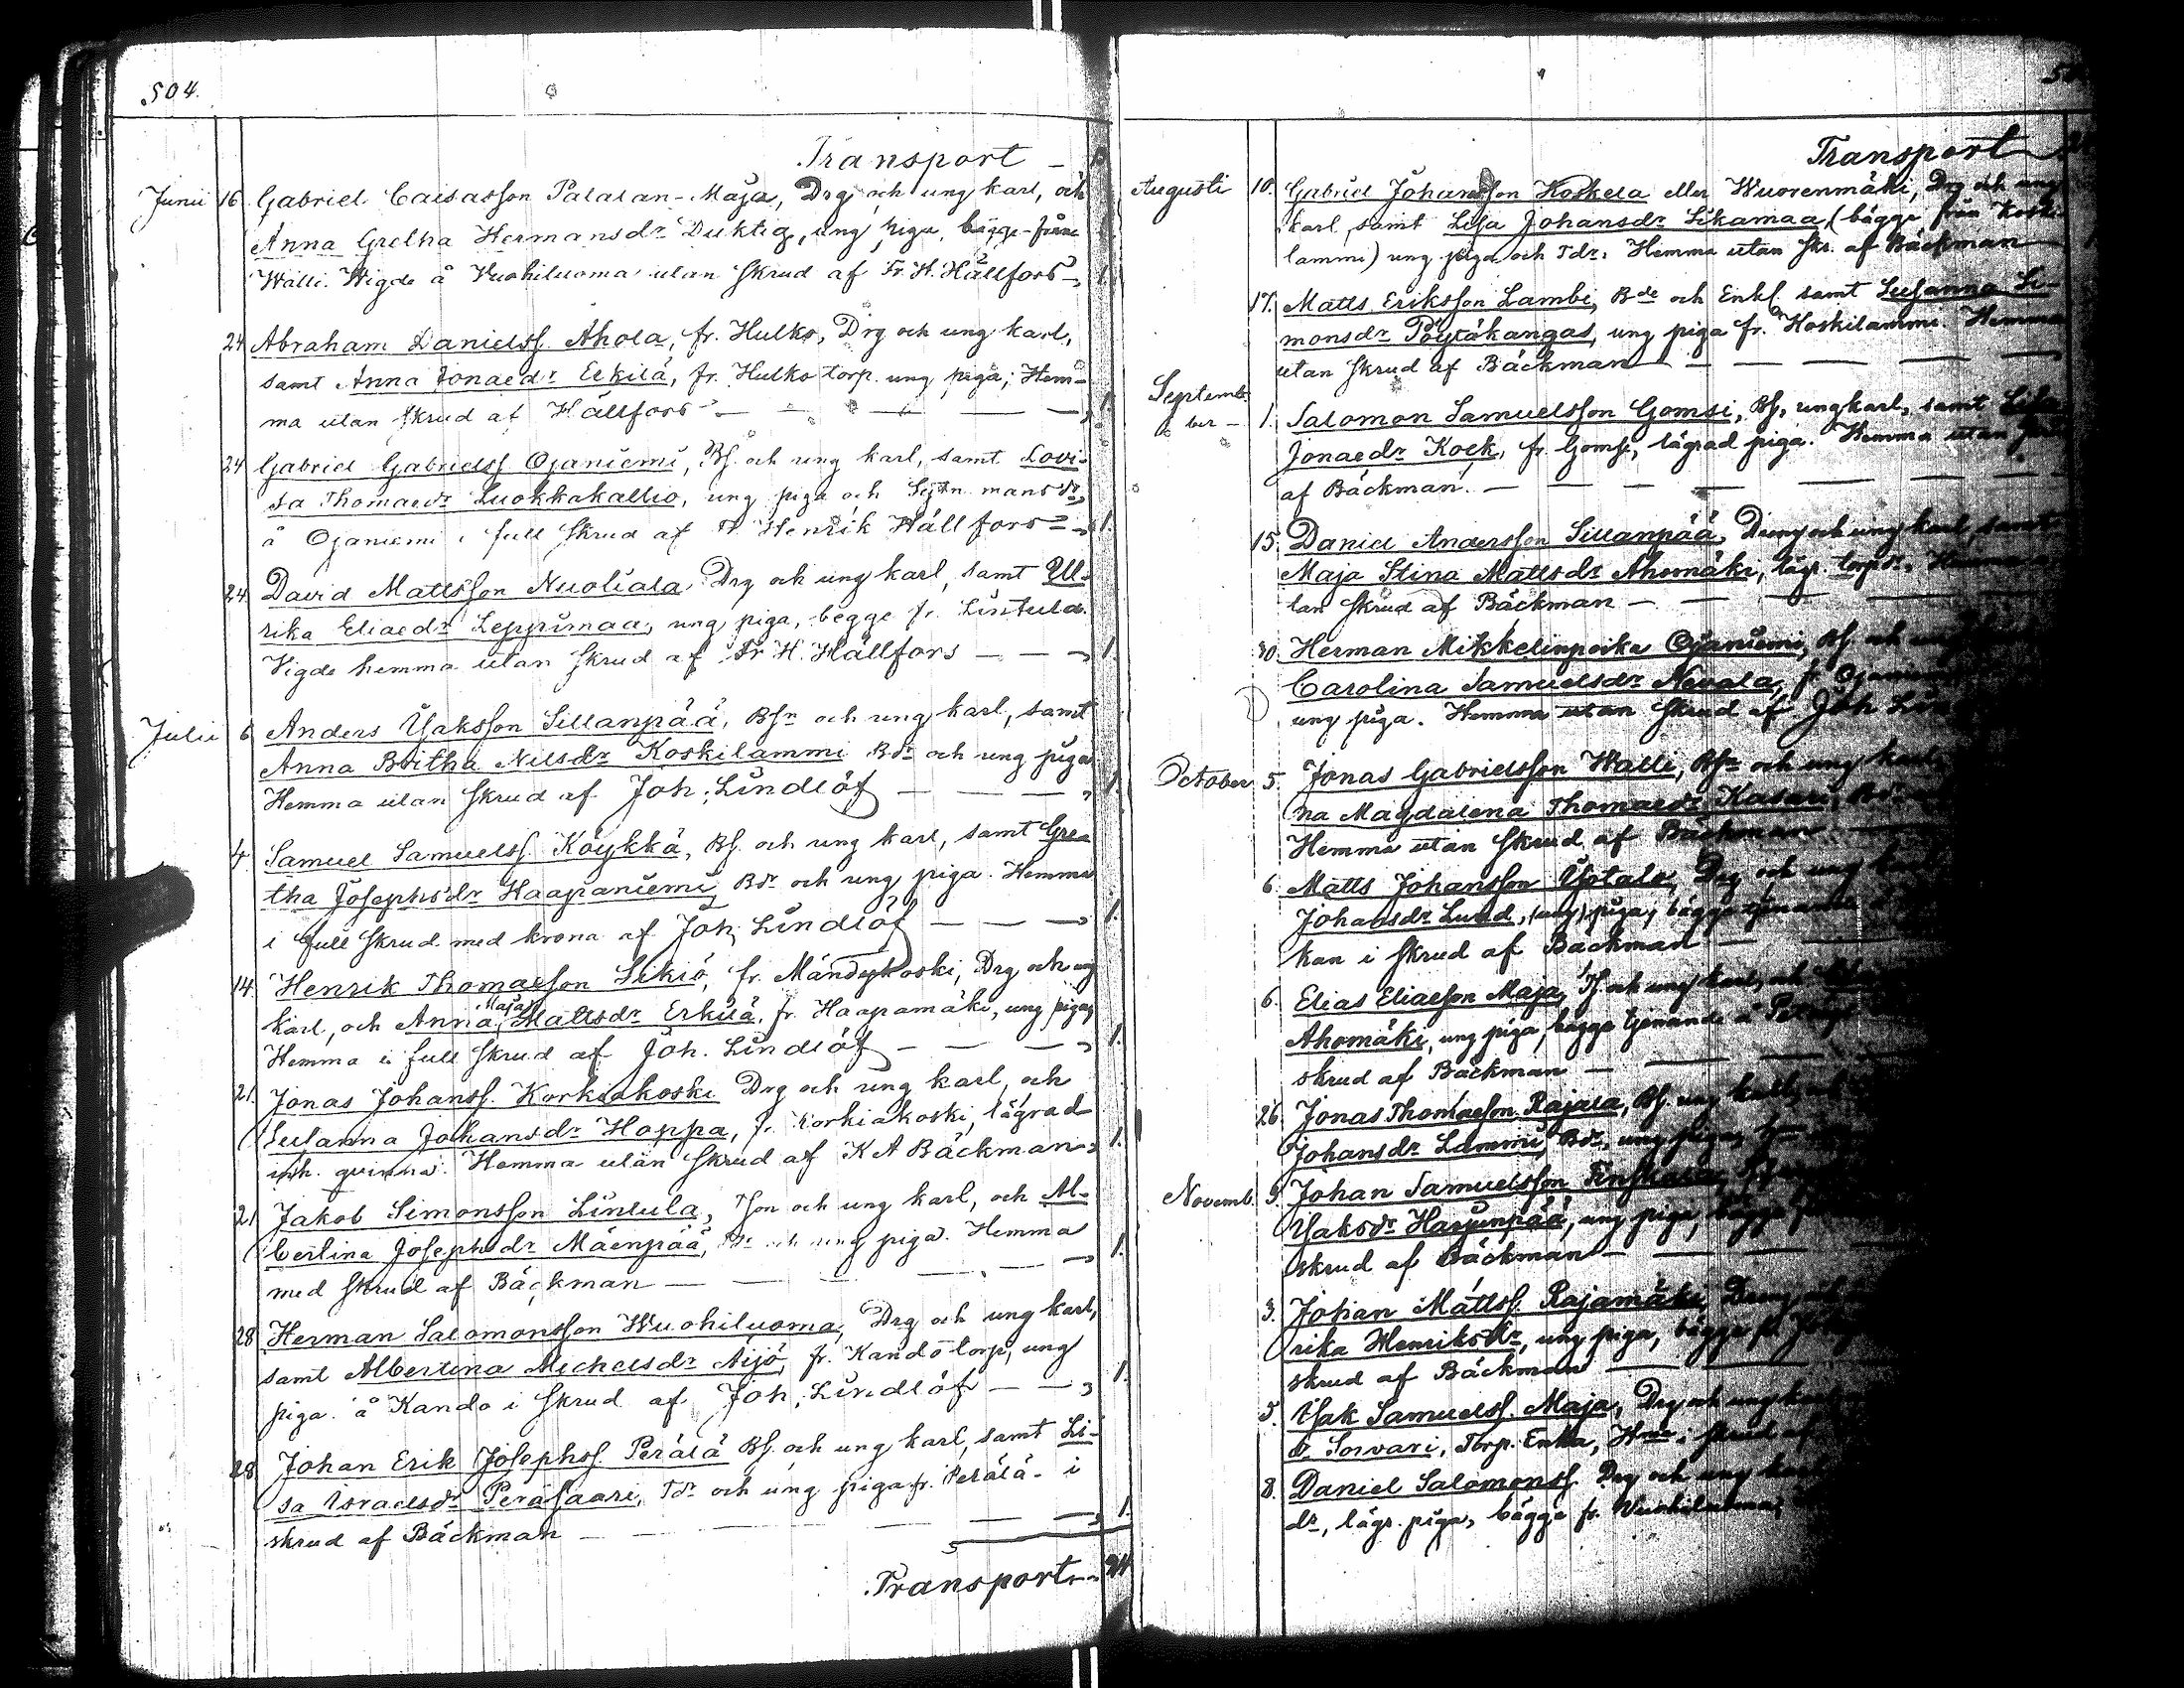 504.
Transport — 
Junii 16 Gabriel Caisasson Palatan-Maja, Drg och ung karl, och
Anna Gretha Hermansdr Duktig, ung piga, bägge från
Walli. Wigde å Wuohiluoma utan skrud af Fr. H. Hällfors — 1.
24 Abraham Danielss. Ahola, fr. Hulko, Drg och ung karl,
samt Anna Jonaedr Erkilä, fr. Hulko torp. ung piga; Hem-
ma utan skrud af Hällfors — — — — 1.
24 Gabriel Gabrielss Ojaniemi, Bs. och ung karl, samt Lovi-
sa Thomaedr Luokkakallio, ung piga och mansdr,
å Ojaniemi i full skrud af Fr Henrik Hällfors — 1.
24. David Mattsson Nuoliala Drg och ung karl, samt Ul-
rika Eliaedr Leppimaa, ung piga, begge fr. Lintula.
Vigde hemma utan skrud af Fr H. Hällfors — — 1.
Julii 6 Anders Ysaksson Sillanpää, Bsn och ung karl, samt
Anna Britha Nilsdr Koskilammi Bdr och ung piga
Hemma utan skrud af Joh. Lindlöf — — — 1.
7. Samuel Samuelss. Köykkä, Bs. och ung karl, samt Gre-
tha Josephsdr Haapaniemi Bdr och ung piga. Hemma
i full skrud med krona af Joh. Lindlöf — — — 1.
14. Henrik Thomaeson Sikiö, fr. Mändykoski, Drg och ung
karl, och Anna Maja Mattsdr Erkilä, fr. Haapamäki, ung piga,
Hemma i full skrud af Joh. Lindlöf — — — 1.
21. Jonas Johanss. Korkiakoski Drg och ung karl, och
Susanna Johansdr Hoppa, fr. Korkiakoski, lägrad
inh. qvinna. Hemma utan skrud af K A Bäckman — 1.
21 Jakob Simonsson Lintula, Tson och ung karl, och Al-
bertina Josephsdr Mäenpää, Bdr och ung piga. Hemma
med skrud af Bäckman — — — — — 1.
28 Herman Salomonsson Wuohiluoma, Drg och ung karl,
samt Albertina Michelsdr Äijö, fr. Kando torp, ung
piga. å Kando i skrud af Joh. Lindlöf — — 1.
28 Johan Erik Josephss. Perälä Bs. och ung karl, samt Li-
sa Israelsdr Peräsaari, Tdr och ung piga fr. Perälä. i
skrud af Bäckman — — — — — 1.
Transport — 24
Transport
Augusti 10. Gabriel Johansson Koskela eller Wuorenmäki, Drg och ung
karl, samt Lisa Johansdr Likamaa, (bägge från Koski-
lammi) ung piga och Tdr, Hemma utan skr. af Bäckman
17. Matts Eriksson Lambi, Bde och Enkl. samt Susanna Si-
monsdr Pöytäkangas, ung piga fr. Koskilammi. Hemma
utan skrud af Bäckman — — — — —
Septem-
ber — 1. Salomon Samuelsson Gomsi, Bs, ung karl, samt Lisa
Jonaedr Kock, fr. Gomsi, lägrad piga. Hemma utan
af Bäckman. — — — — — —
15. Daniel Andersson Sillanpää, Dreng och ung karl, samt
Maja Stina Mattsdr Ahomäki, lägr. torpdr, Hemma u-
tan skrud af Bäckman — — — —
30. Herman Mikkelinpoika Ojaniemi, Bs. och ung
Carolina Samuelsdr Nevala, fr. Ojaniemi
ung piga. Hemma utan skrud af Joh. Lin
October 5. Jonas Gabrielsson Walli, Bsn och ung karl
na Magdalena Thomaedr Kasari, Bdr
Hemma utan skrud af Bäckman —
6. Matts Johansson Ypotala, Drg och ung
Johansdr Lund, (ung) piga, bägge tjenande
kan i skrud af Bäckman —
6. Elias Eliaeson Maja, Ts. och ung karl, och
Ahomäki, ung piga, bägge tjenande å
skrud af Bäckman —
26. Jonas Thomaeson Rajala, Bs. ung karl, och
Johansdr Lammi, Bdr, ung piga,
Novemb. 3. Johan Samuelsson
Ysaksdr Harjunpää, ung piga, bägge
skrud af Bäckman —
3. Johan Mattss. Rajamäki, Dreng och
rika Henriksdr, ung piga, bägge fr.
skrud af Bäckman —
5. Ysak Samuelss. Maja, Drg och ung karl
dr Sorvari, Torp. Enka, i skrud af
8. Daniel Salomonss. Drg och ung karl
dr, lägr. piga, bägge fr. Wuohiluoma,